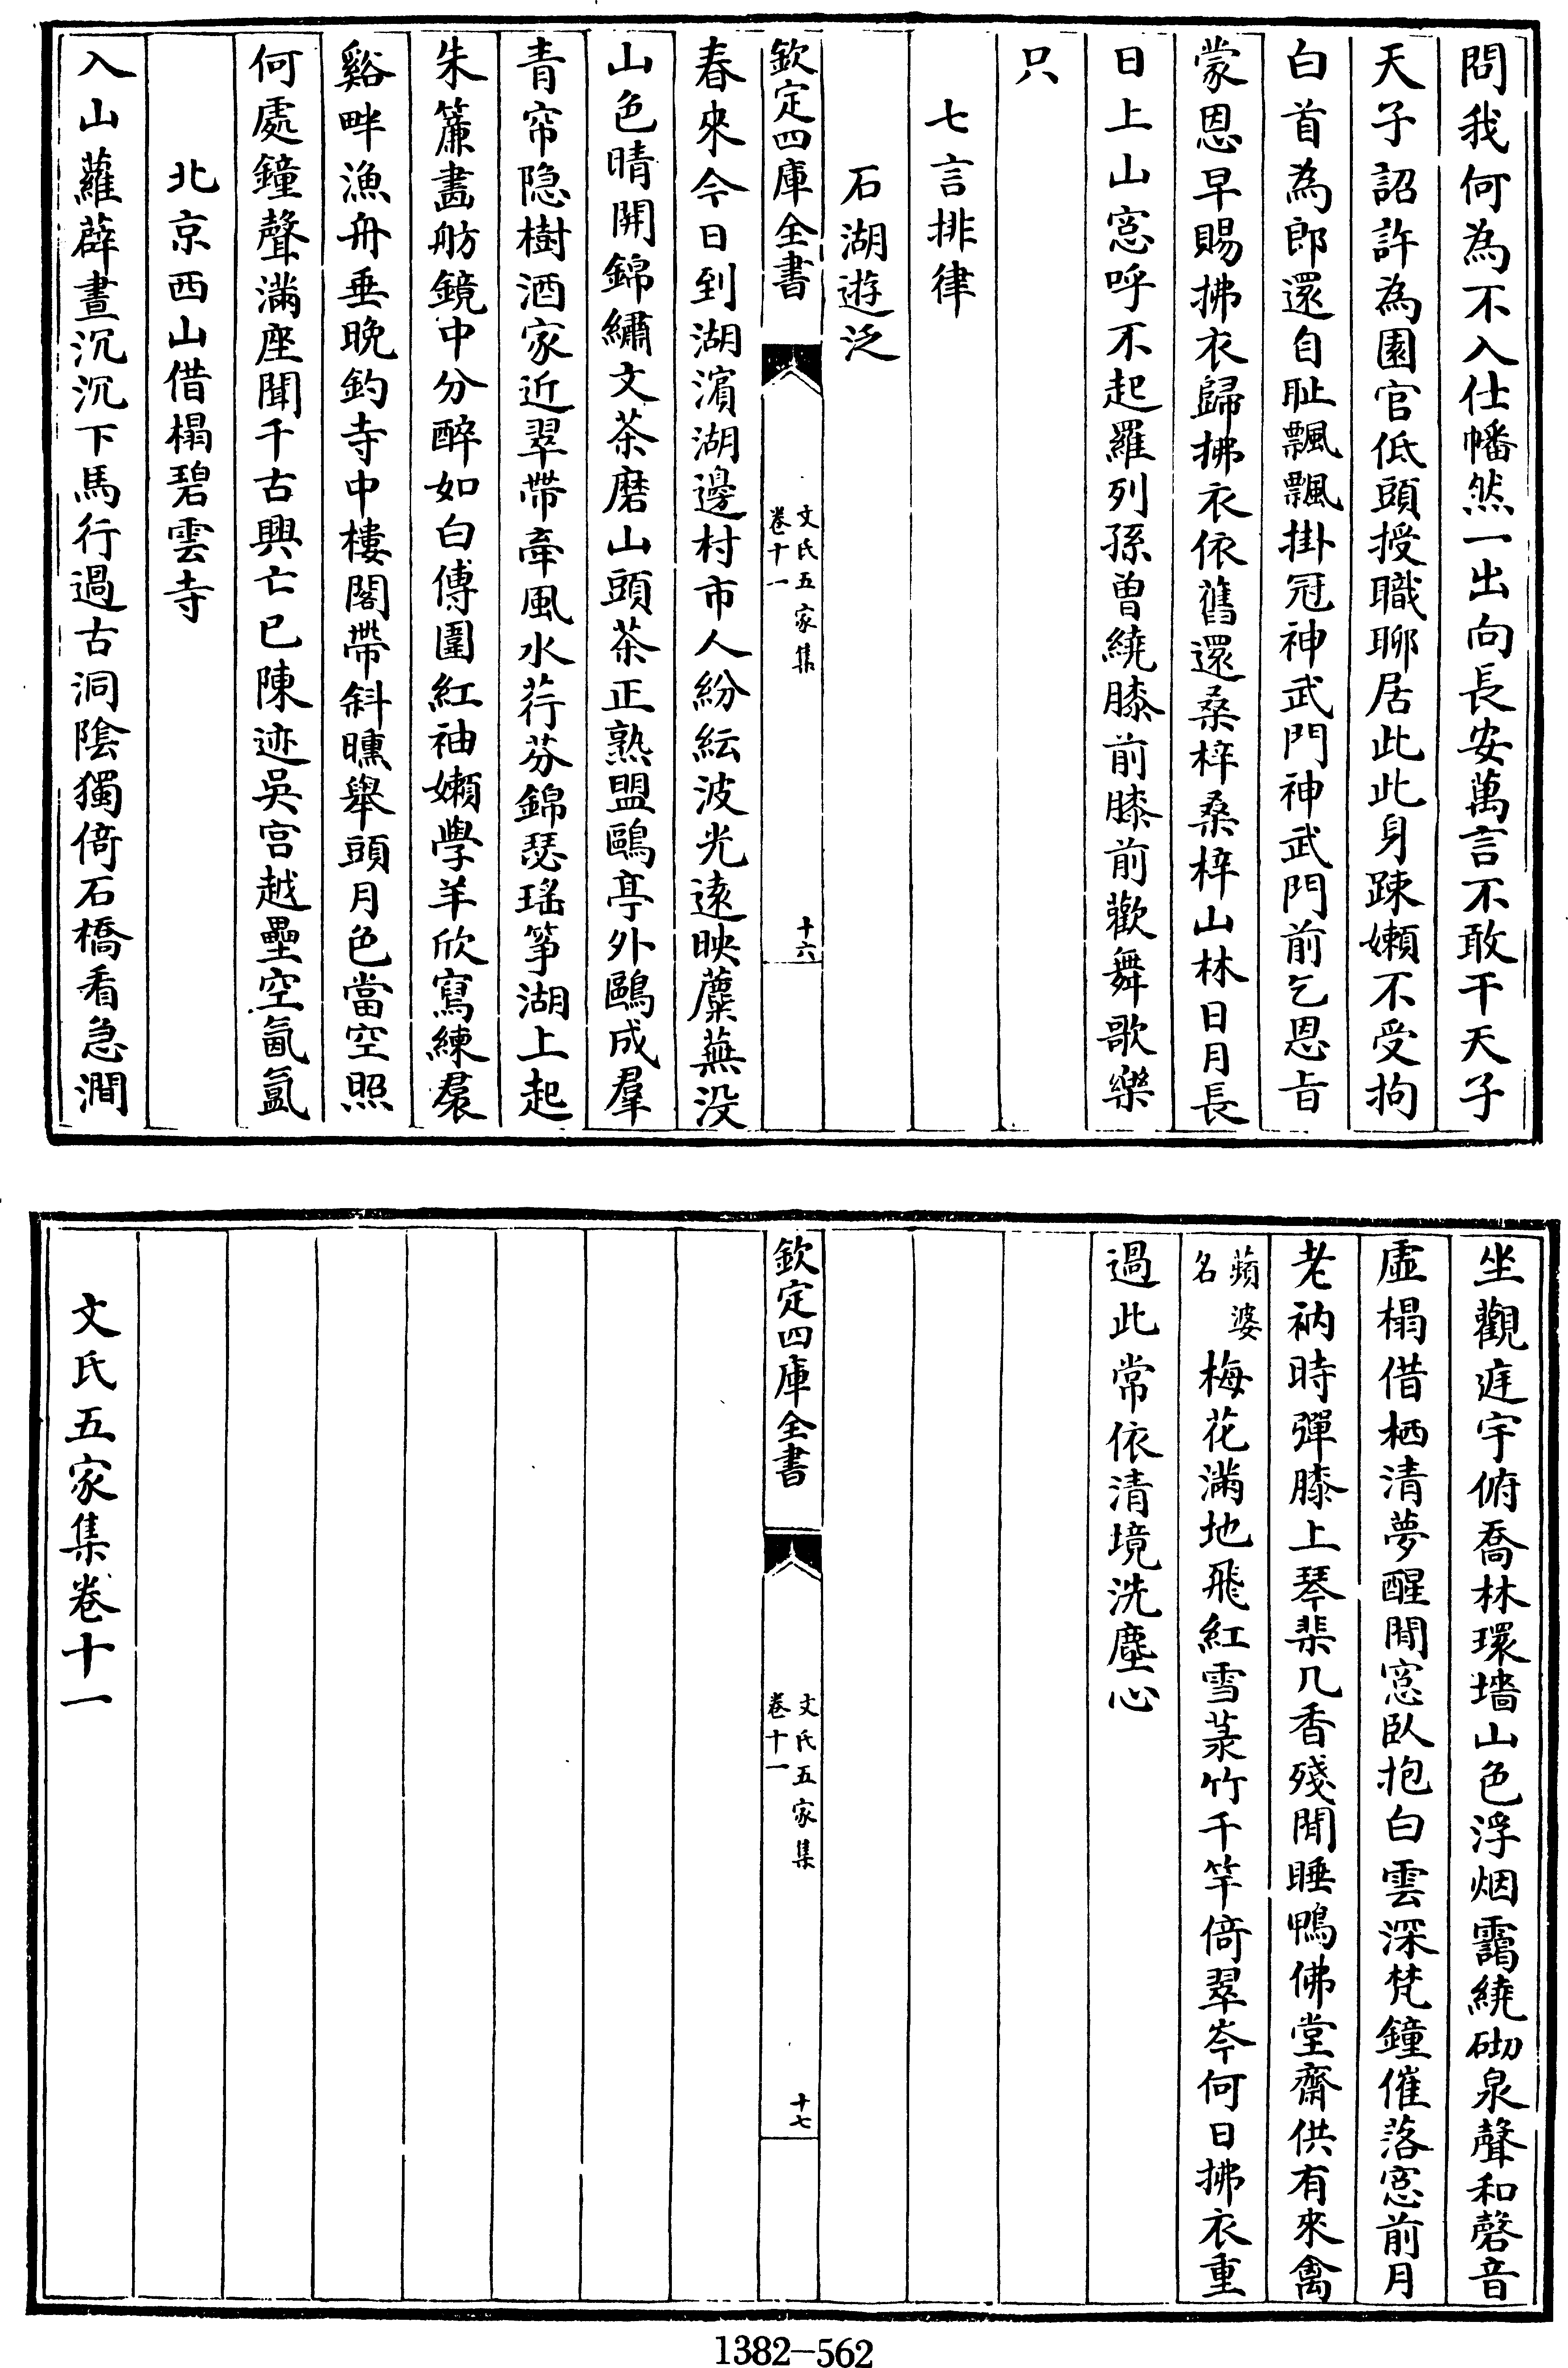 問我何為不入仕幡然一出向長安萬言不敢干天子
天子詔許為園官低頭授職聊居此此身踈嬾不受拘
白首為郎還自耻飄飄掛冠神武門神武門前乞恩㫖
蒙恩早賜拂衣歸拂衣依舊還桑梓桑梓山林日月長
日上山窓呼不起羅列孫曽繞膝前膝前歡舞歌樂
只
七言排律
石湖遊泛
欽定四庫全書
文氏五家集
卷十一
十六
春來今日到湖濵湖邊村市人紛紜波光逺映蘪蕪没
山色晴開錦繡文茶磨山頭茶正熟盟鷗亭外鷗成羣
青帘隐樹酒家近翠帶牽風水荇芬錦瑟瑶筝湖上起
朱簾畵舫鏡中分醉如白傅圍紅袖嬾學羊欣寫練裠
谿畔漁舟垂晚釣寺中樓閣帶斜曛舉頭月色當空照
何處鐘聲滿座聞千古興亡已陳迹吳宫越壘空氤氲
北京西山借榻碧雲寺
入山蘿薜晝沉沉下馬行過古洞隂獨倚石橋看急澗
坐觀庭宇俯喬林環墻山色浮烟靄繞砌泉聲和磬音
虛榻借栖清夢醒閒窓臥抱白雲深梵鐘催落窓前月
老衲時彈膝上琴棐几香殘閒睡鴨佛堂齋供有來禽
蘋婆
名
梅花滿地飛紅雪菉竹千竿倚翠岑何日拂衣重
過此常依清境洗塵心
欽定四庫全書
文氏五家集
卷十一
十七
文氏五家集卷十一
1382-562